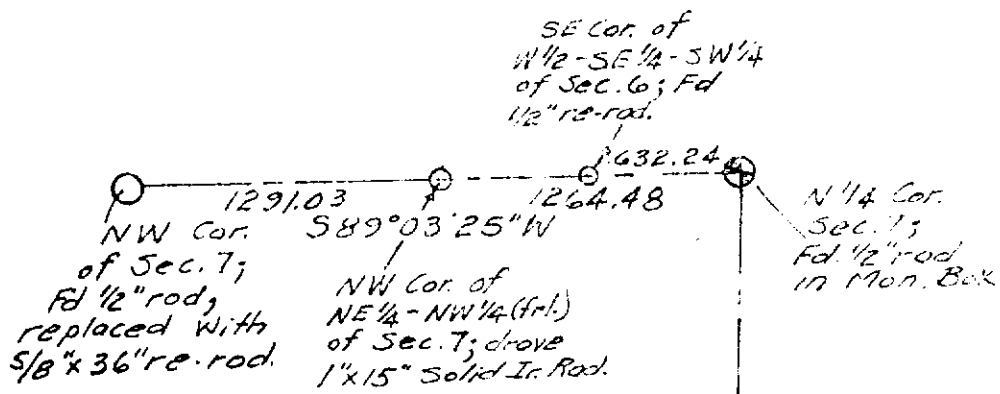 SE Cor. of
W 1/2 - SE 1/4 - SW 1/4
of Sec. 6; Fd
1/2" re-rod.
632.24
1291.03
1264.48
S 89° 03' 25" W
NW Cor.
of Sec. 7;
Fd 1/2" rod,
replaced with
5/8" x 36" re-rod.
NW Cor. of
NE 1/4 - NW 1/4 (frl.)
of Sec. 7; drove
1" x 15" Solid Ir. Rod.
N 1/4 Cor.
Sec. 7;
Fd. 1/2" rod
in Mon. Box